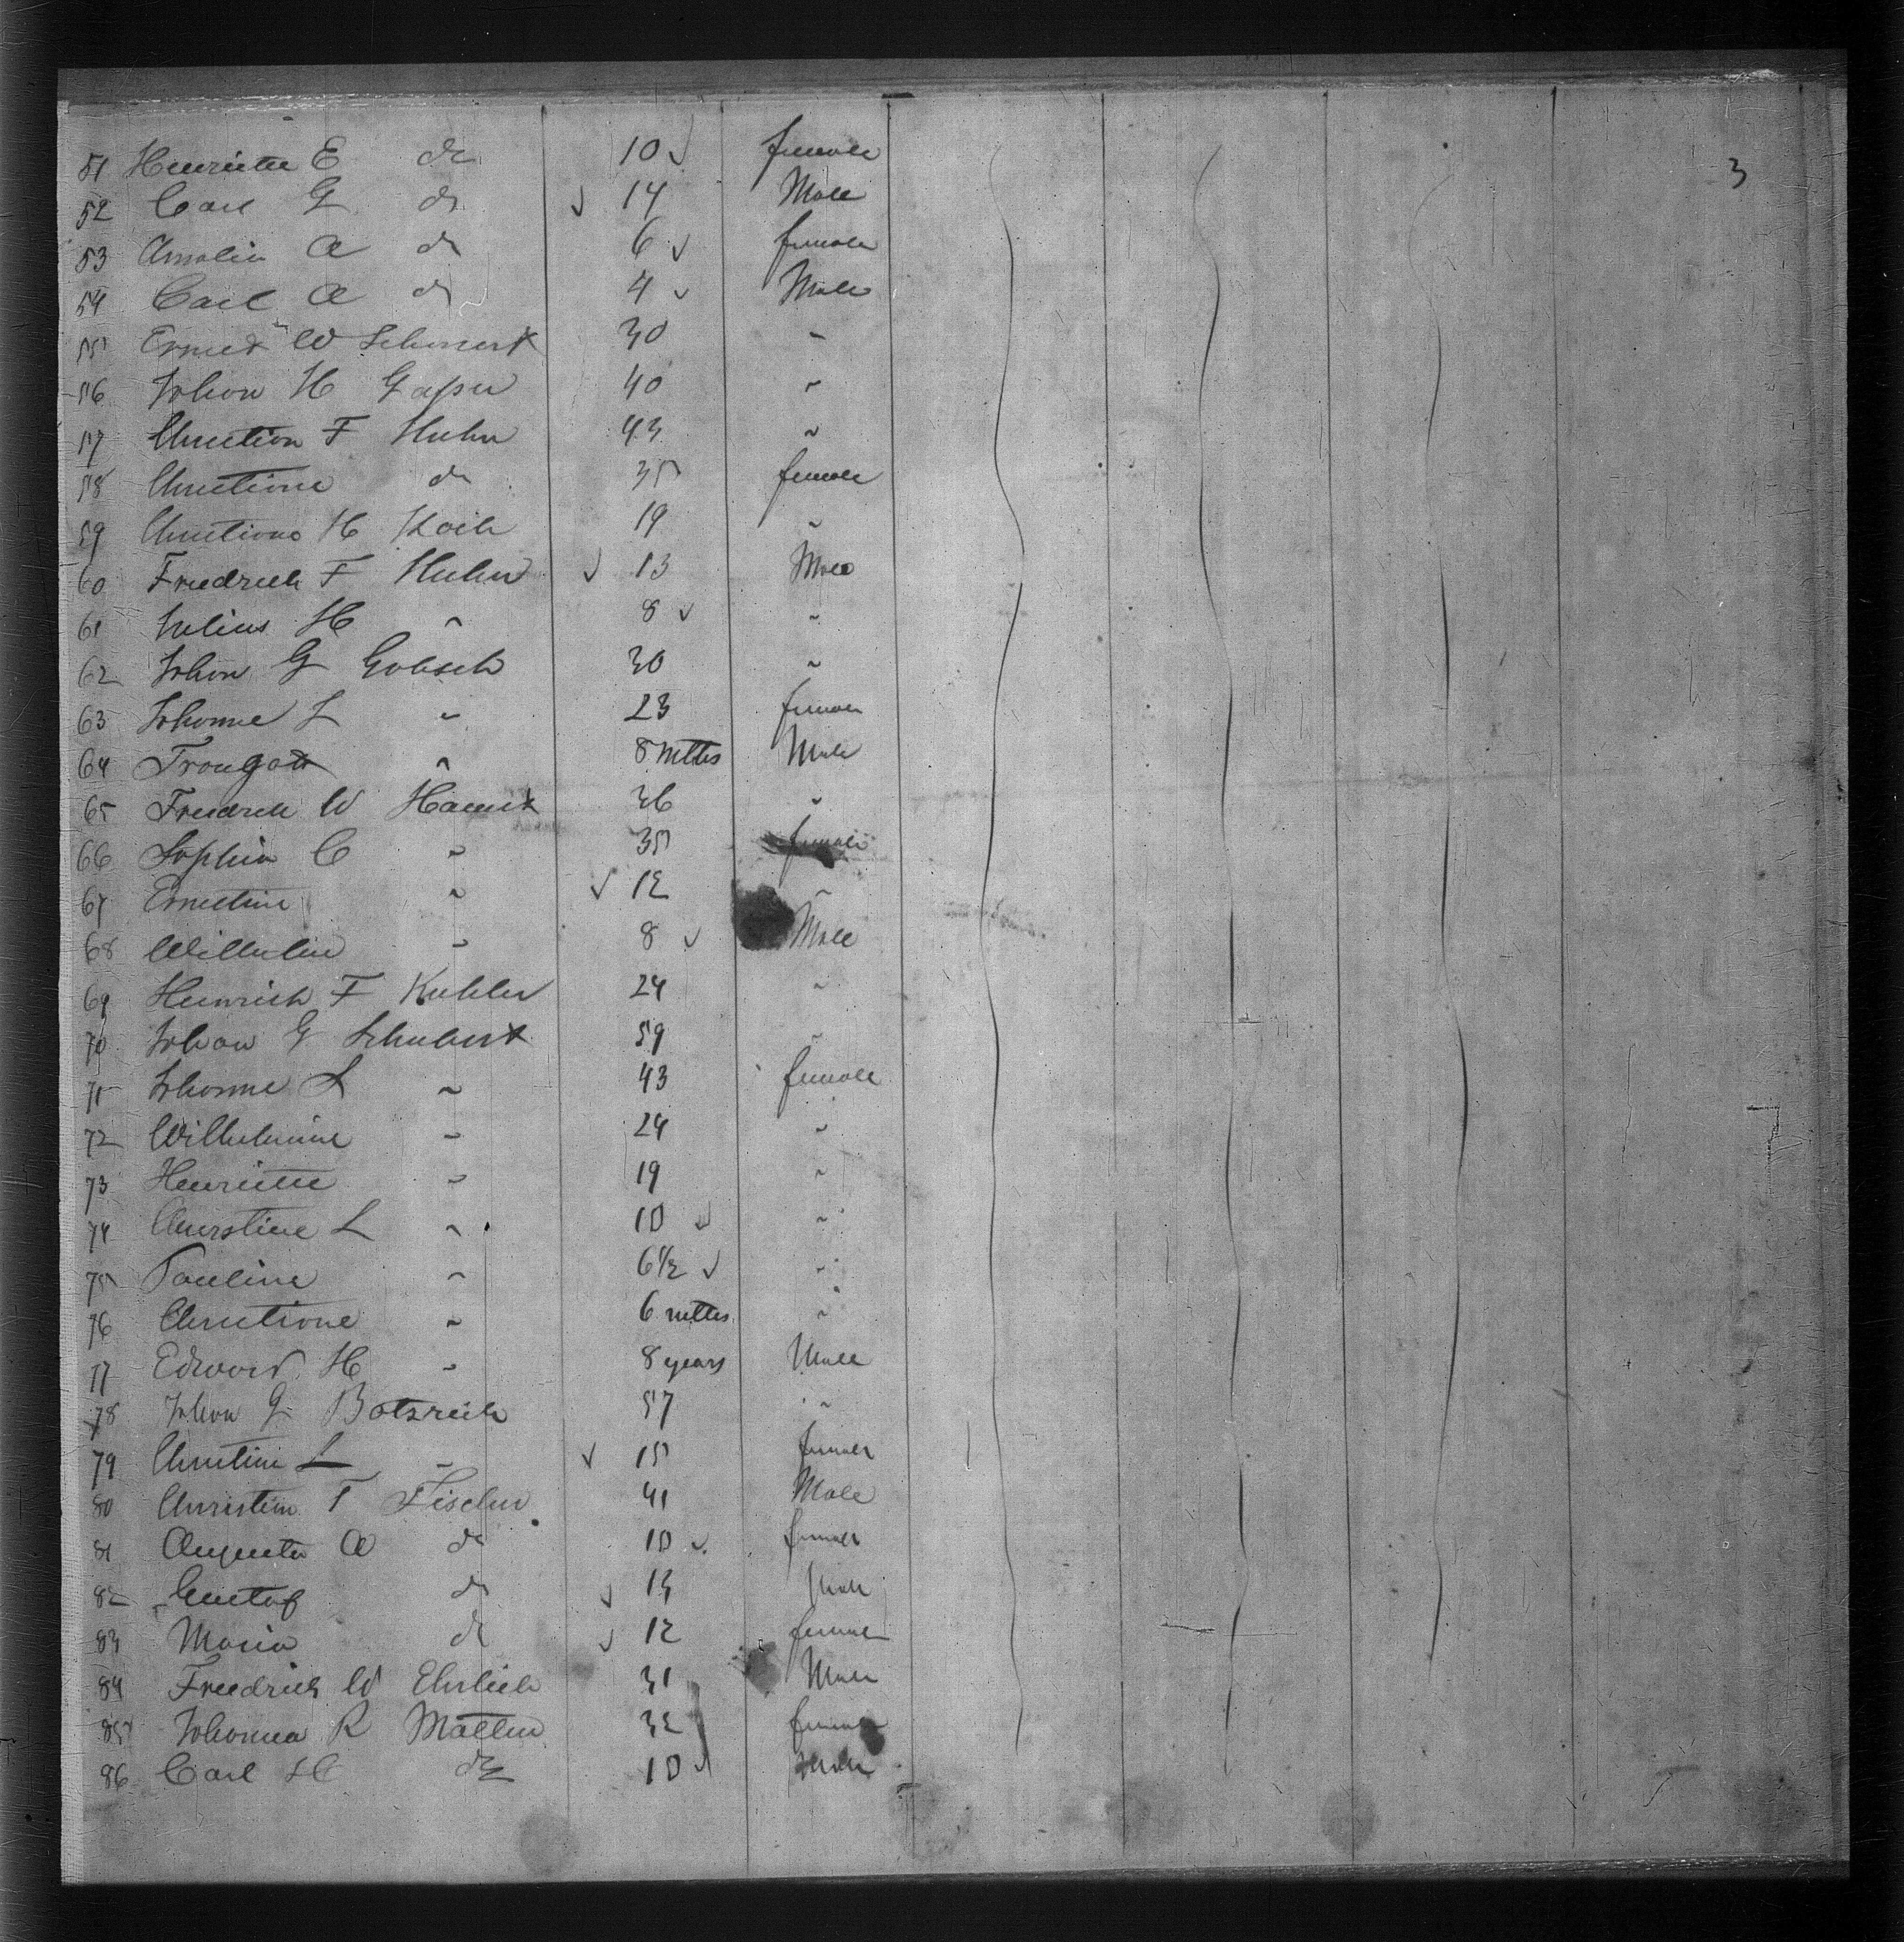 3
51 Henriette E do 10 ✓ female
52 Carl G do ✓ 14 Male
53 Amalia A do 6 ✓ female
54 Carl A do 4 ✓ Male
55 Ernest W 30 "
56 Johan H 40 "
57 Christian F Huhn 43 "
58 Christiane do 35 female
59 Christiane H Koch 19 "
60 Friedrich F Huhn ✓ 13 Male
61 Julius H " 8 ✓ "
62 Johan G Gobsch 30 "
63 Johanne L " 23 female
64 Traugott " 8 mths Male
65 Friedrich W 36 "
66 Sophia C " 35 female
67 Ernestine " ✓ 12 "
68 Wilhelm " 8 ✓ Male
69 Heinrich F Kuhler 24 "
70 Johan G Schubert 59 "
71 Johanne L " 43 female
72 Wilhelmine " 24 "
73 Henriette " 19 "
74 Christine L " 10 ✓ "
75 Pauline " 6½ ✓ "
76 Christiane " 6 mths "
77 Edward H " 8 years Male
78 Johan G 57 "
79 Christine L " ✓ 15 female
80 Christian F Fischer 41 Male
81 Augusta A do 10 ✓ female
82 Gustaf do ✓ 13 Male
83 Maria do ✓ 12 female
84 Friedrich W Ehrlich 31 Male
85 Johanna R 32 female
86 Carl H do 10 ✓ Male